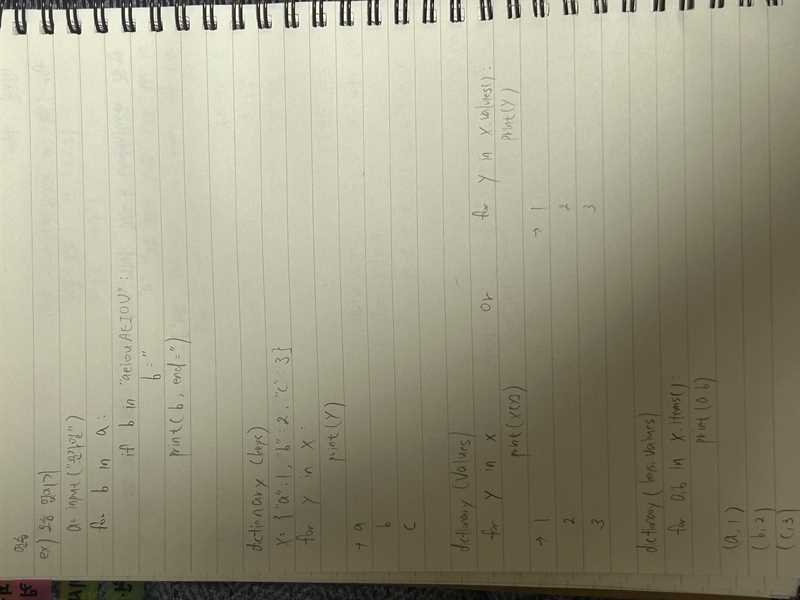 연습
ex) 모음 없애기
a= input ("문자열")
for b in a:
if b in "aeiouAEIOU":
b=''
print(b, end='')
dictionary (keys
X= {"a":1, b":2, "c" 3}
for Y in X:
print(Y)
→ a
b
c
dictionary (Values)
for Y in X or for Y in X.values():
print(X[Y]) print(Y)
→ 1 → 1
2 2
3 3
dictionary (keys, values)
for a,b in X.items():
print(a,b)
(a, 1)
(b, 2)
(c, 3)